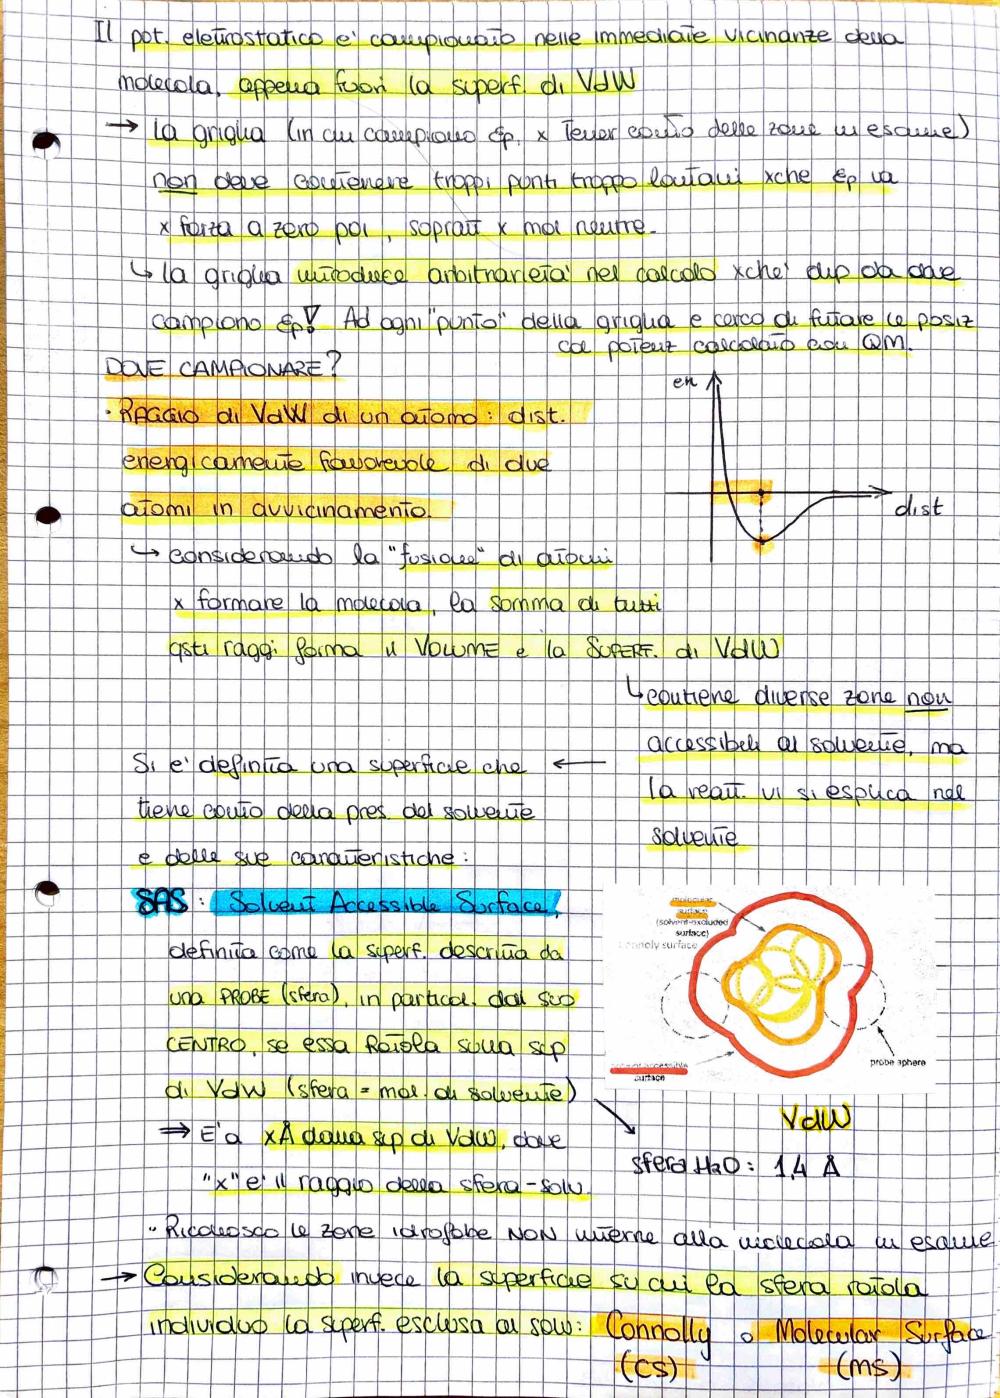 Il pot. elettrostatico e' campionato nelle immediate vicinanze della
molecola, appena fuori la superf. di VdW
→ la griglia (in cui campiono Ep. x tener conto delle zone in esame)
non deve contenere troppi punti troppo lontani xche Ep va
x forza a zero poi, sopratt x mol neutre.
↳ la griglia introduce arbitrarieta' nel calcolo xche' dip da dove
campiono Ep! Ad ogni "punto" della griglia e cerco di fittare le posiz
col potenz calcolato con QM.
DOVE CAMPIONARE?
· RAGGIO di VdW di un atomo: dist.
energicamente favorevole di due
atomi in avvicinamento.
en
dist
↳ considerando la "fusione" di atomi
x formare la molecola, la somma di tutti
qsti raggi forma il VOLUME e la SUPERF. di VdW
↳ contiene diverse zone non
accessibili al solvente, ma
la reatt. vi si esplica nel
solvente
Si e' definita una superficie che ←
tiene conto della pres. del solvente
e delle sue caratteristiche:
SAS: Solvent Accessible Surface,
definita come la superf. descritta da
una PROBE (sfera), in particol. dal suo
CENTRO, se essa rotola sulla sup
di VdW (sfera = mol. di solvente)
molecular
surface
(solvent-excluded
surface)
Connoly surface
probe sphere
accessible
surface
VdW
sfera H2O: 1,4 Å
⇒ E' a xÅ dalla sup di VdW, dove
"x" e' il raggio della sfera-solv.
· Riconosco le zone idrofobe NON interne alla molecola in esame
→ Considerando invece la superficie su cui la sfera rotola
individuo la superf. esclusa al solv: Connolly o Molecular Surface
(CS) (MS)